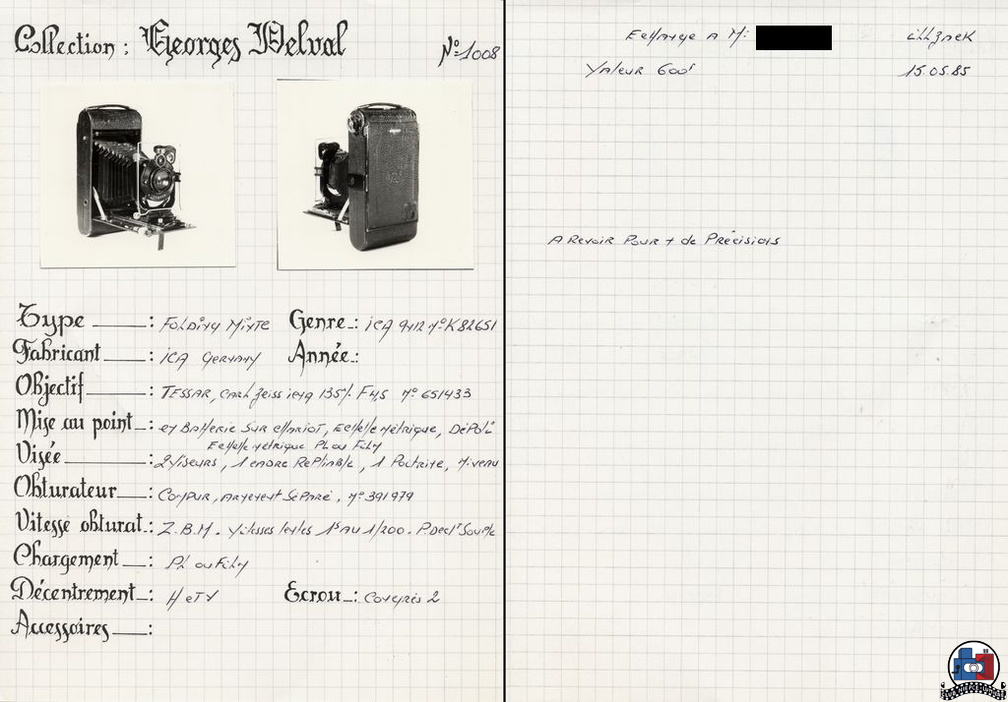 Collection : Georges Delval
N° 1008
Type : Folding Mixte Genre : ICA 9x12 N° K82651
Fabricant : ICA Germany Année :
Objectif : TESSAR, Carl Zeiss iena 135% F4,5 N° 651433
Mise au point : en Batterie sur chariot, Echelle métrique, Dépoli
Echelle métrique Pl ou Film
Visée : 2 Viseurs, 1 cadre Repliable, 1 Poitrine, Niveau
Obturateur : Compur, Armement Séparé, N° 391979
Vitesse obturat. : Z.B.M. Vitesses lentes 1s AU 1/200. P. Declt Souple
Chargement : Pl ou Film
Décentrement : H et V Ecrou : Congrès 2
Accessoires :
Echange A M:
Valeur 600f 15.05.85
A Revoir Pour + de Précisions